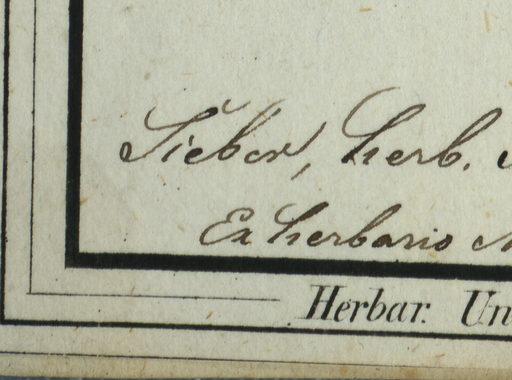 Sieber, herb.
Ex herbario
Herbar. Un